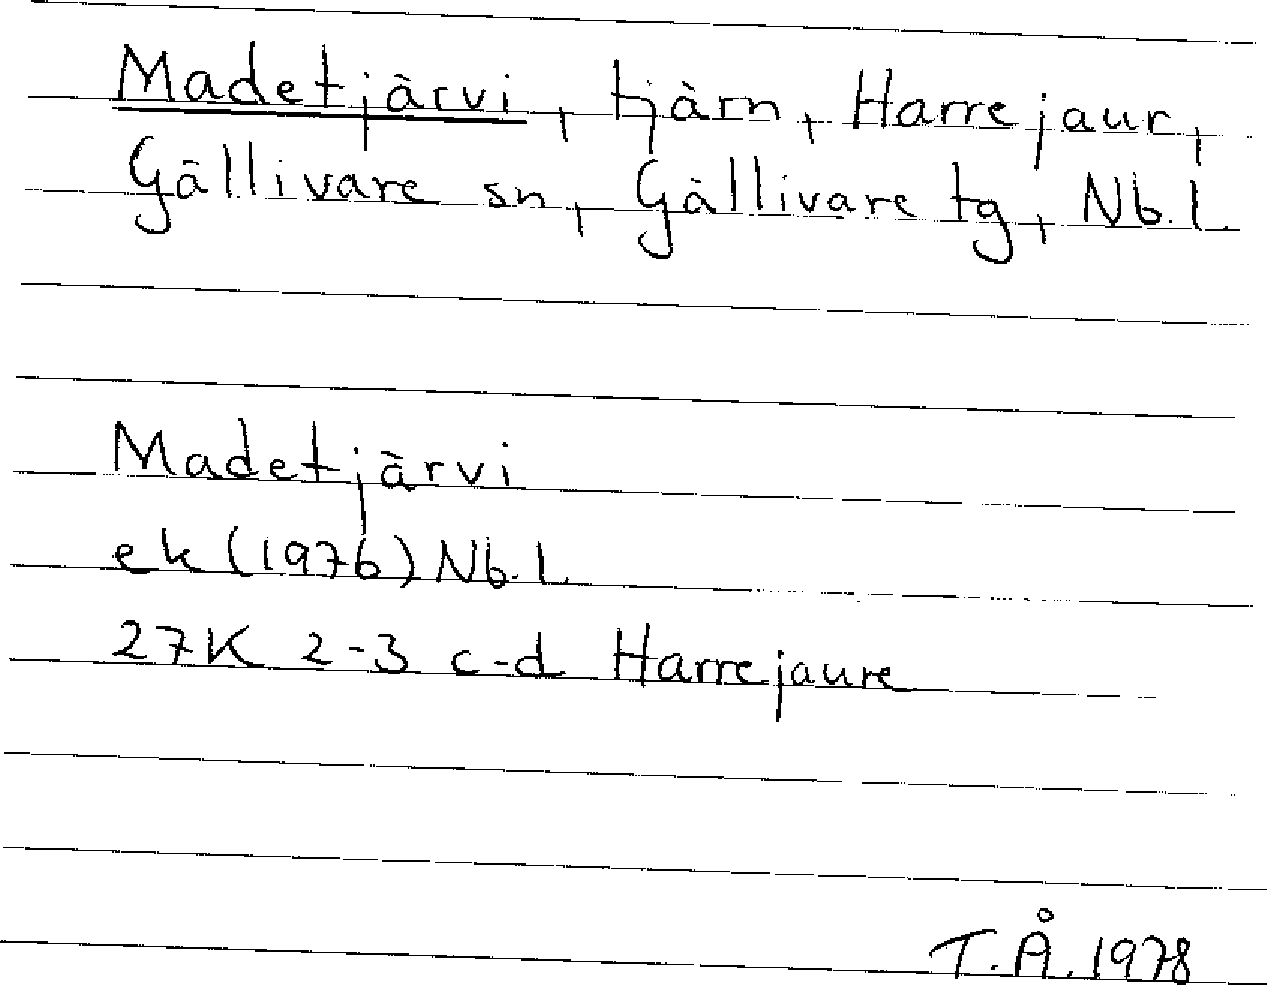 Madetjärvi, tjärn, Harrejaur,
Gällivare sn, Gällivare tg, Nb.L
Madetjärvi
ek (1976) Nb.L
27K 2-3 c-d Harrejaure
T.Å. 1978